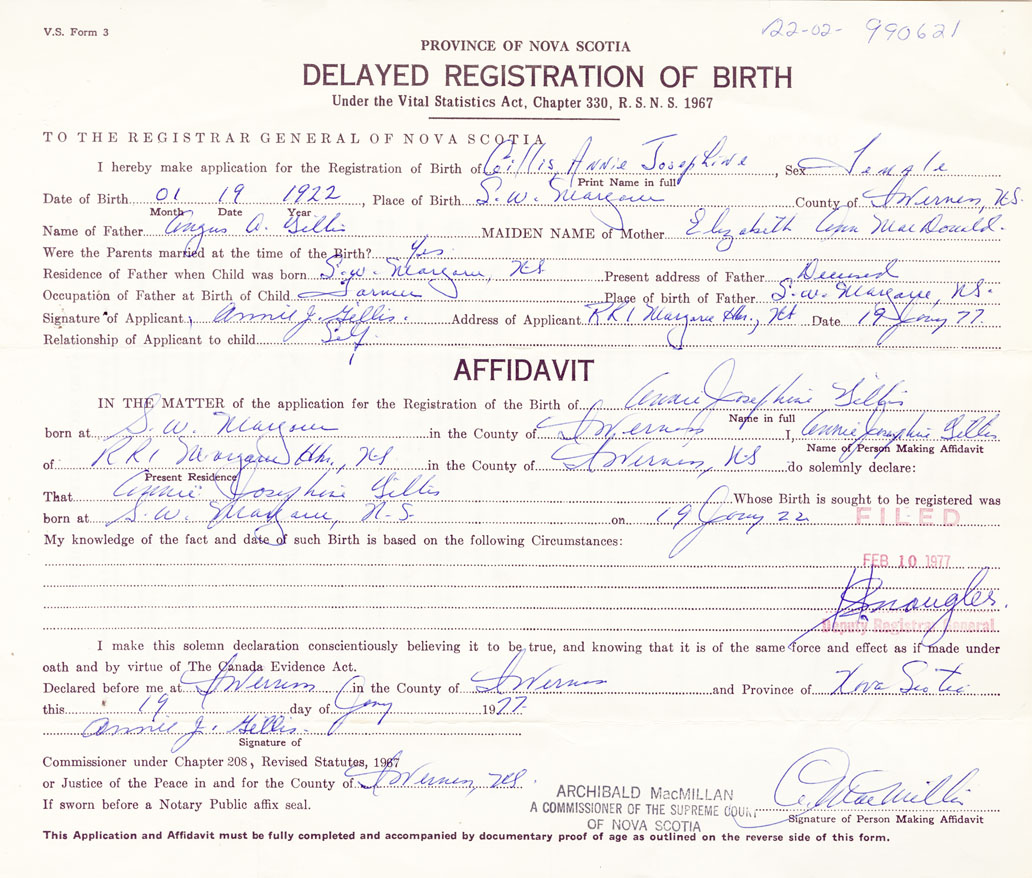 V.S. Form 3
22-02- 990621
PROVINCE OF NOVA SCOTIA
DELAYED REGISTRATION OF BIRTH
Under the Vital Statistics Act, Chapter 330, R. S. N. S. 1967
TO THE REGISTRAR GENERAL OF NOVA SCOTIA
I hereby make application for the Registration of Birth of Gillis, Annie Josephine, Sex
Print Name in full
Date of Birth 01 19 1922, Place of Birth S.W. Margaree County of Inverness, NS.
Month Date Year
Name of Father Angus A. Gillis MAIDEN NAME of Mother Elizabeth Ann MacDonald.
Were the Parents married at the time of the Birth? Yes
Residence of Father when Child was born S.W. Margaree, NS Present address of Father Deceased
Occupation of Father at Birth of Child Farmer Place of birth of Father S.W. Margaree, NS.
Signature of Applicant Annie J. Gillis. Address of Applicant RR1 Margaree Hbr., NS Date 19 Jany 77
Relationship of Applicant to child Self
AFFIDAVIT
IN THE MATTER of the application for the Registration of the Birth of Annie Josephine Gillis
Name in full
born at S.W. Margaree in the County of Inverness I, Annie Josephine Gillis
Name of Person Making Affidavit
of RR1 Margaree Hbr., NS in the County of Inverness, NS do solemnly declare:
Present Residence
That Annie Josephine Gillis Whose Birth is sought to be registered was
born at S.W. Margaree, N.S. on 19 Jany 22
FILED
My knowledge of the fact and date of such Birth is based on the following Circumstances:
FEB 10 1977
Deputy Registrar General
I make this solemn declaration conscientiously believing it to be true, and knowing that it is of the same force and effect as if made under
oath and by virtue of The Canada Evidence Act.
Declared before me at Inverness in the County of Inverness and Province of Nova Scotia
this 19 day of Jany 1977
Annie J. Gillis.
Signature of
Commissioner under Chapter 208, Revised Statutes, 1967
or Justice of the Peace in and for the County of Inverness, NS.
If sworn before a Notary Public affix seal.
ARCHIBALD MacMILLAN
A COMMISSIONER OF THE SUPREME COURT
OF NOVA SCOTIA
A. MacMillan
Signature of Person Making Affidavit
This Application and Affidavit must be fully completed and accompanied by documentary proof of age as outlined on the reverse side of this form.